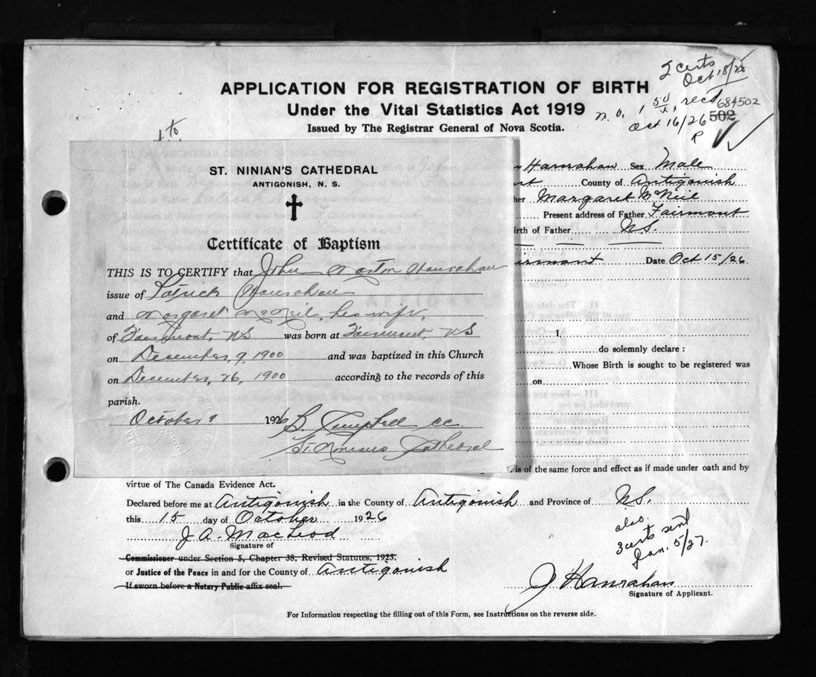 2 certs
Oct 18/26
APPLICATION FOR REGISTRATION OF BIRTH
Under the Vital Statistics Act 1919
Issued by The Registrar General of Nova Scotia.
rec'd 684502
Oct 16/26 502
ST. NINIAN'S CATHEDRAL
ANTIGONISH, N. S.
Certificate of Baptism
THIS IS TO CERTIFY that John Hanrahan
issue of Patrick Hanrahan
and Margaret McNeil, his wife,
of Fairmont, NS was born at Fairmont, NS
on December 9 1900 and was baptized in this Church
on December, 26, 1900 according to the records of this
parish.
October 9 1926 Campbell cc
St. Ninians Cathedral
Hanrahan Sex Male
County of Antigonish
Margaret McNeil
Present address of Father Fairmont
irth of Father N.S.
Date Oct 15/26
I,
do solemnly declare :
Whose Birth is sought to be registered was
on
is of the same force and effect as if made under oath and by
virtue of The Canada Evidence Act.
Declared before me at Antigonish in the County of Antigonish and Province of N.S.
this 15 day of October 1926
J. A. MacLeod
Signature of
Commissioner under Section 5, Chapter 38, Revised Statutes, 1923.
or Justice of the Peace in and for the County of Antigonish
If sworn before a Notary Public affix seal.
also
3 certs sent
Jan. 5/27.
J Hanrahan
Signature of Applicant.
For Information respecting the filling out of this Form, see Instructions on the reverse side.